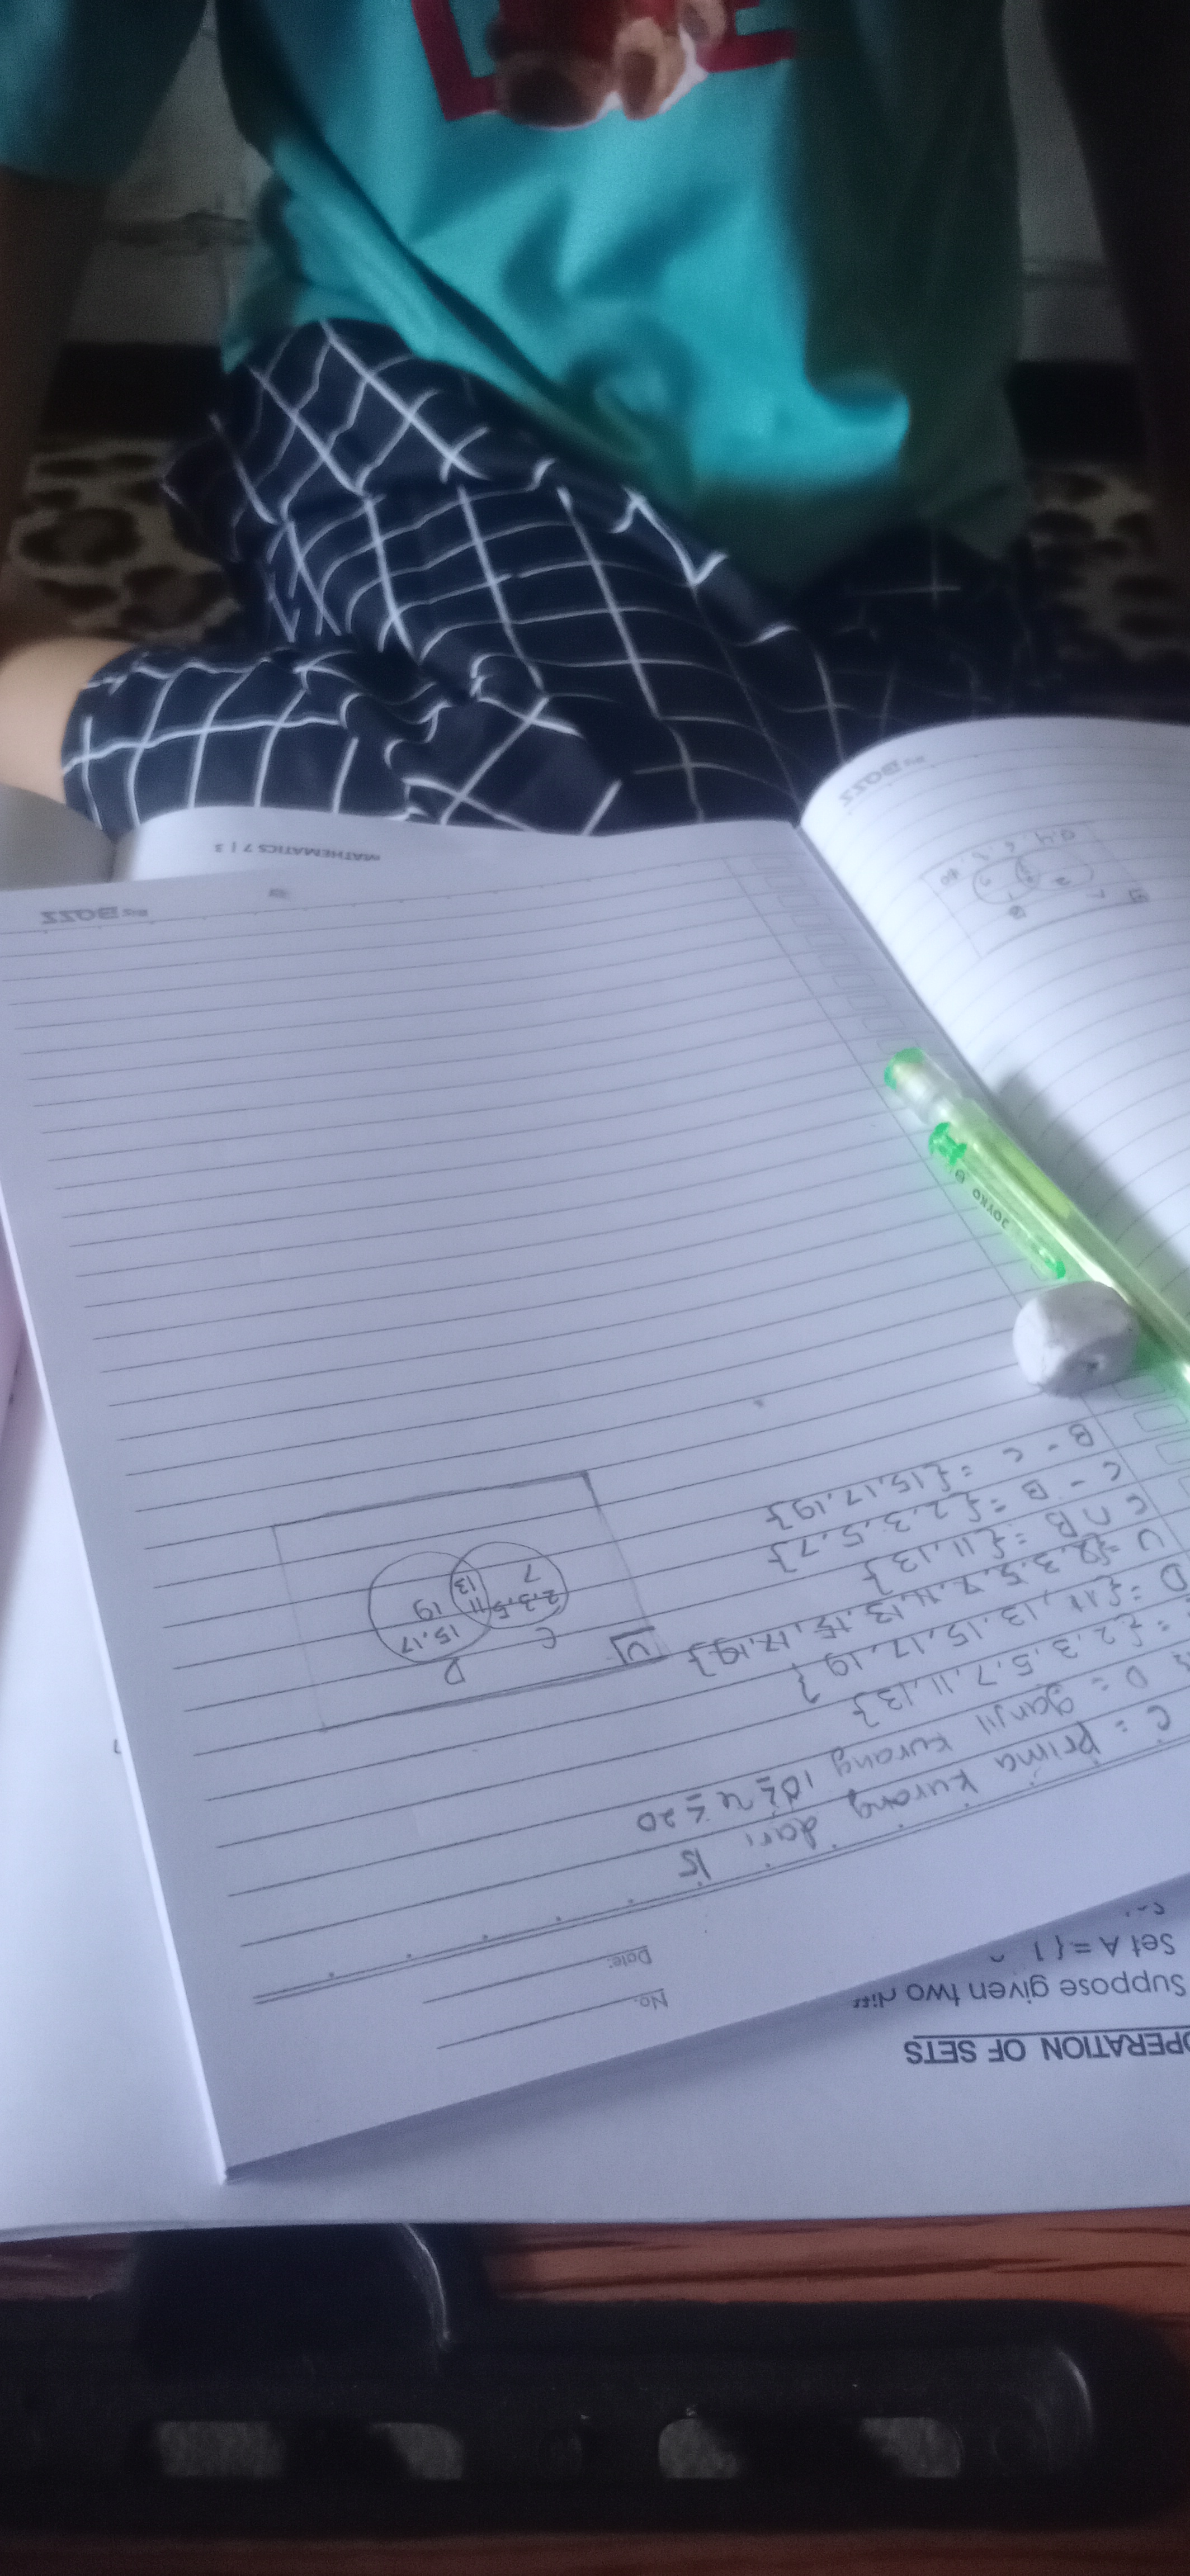 No.
Date:
C = Prima kurang dari 15
D = ganjil kurang 10 ≤ x ≤ 20
= {2,3,5,7,11,13}
D = {11,13,15,17,19}
U = {2,3,5,7,11,13,15,17,19}
C ∩ B = {11,13}
C - B = {2,3,5,7}
B - C = {15,17,19}
U
C D
2,3,5 11 15,17
7 13 19
Big Bozz
MATHEMATICS 7 | 3
OPERATION OF SETS
Suppose given two
Set A = {1
JOYKO
Big Bozz